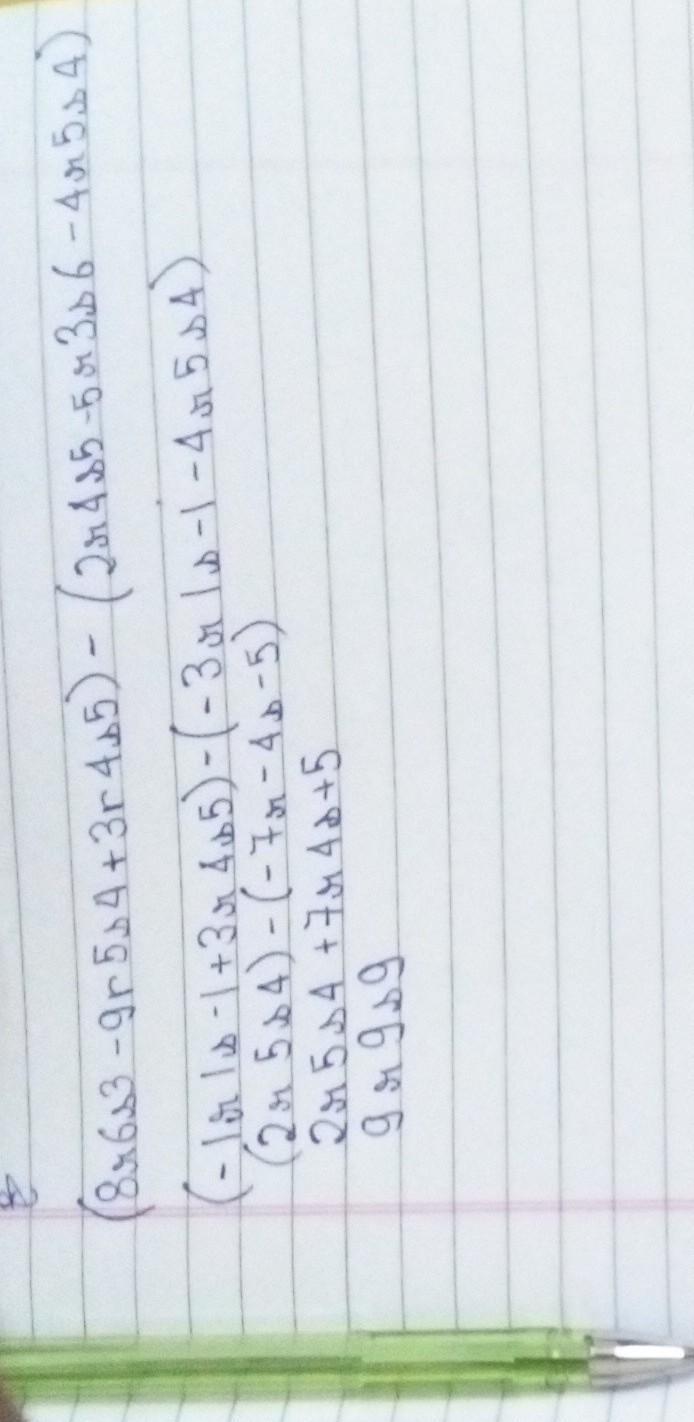 (8r6s3-9r5s4+3r4s5)-(2r4s5-5r3s6-4r5s4)
(-1r1s-1+3r4s5)-(-3r1s-1-4r5s4)
(2r5s4)-(-7r-4s-5)
2r5s4+7r4s+5
9r9s9